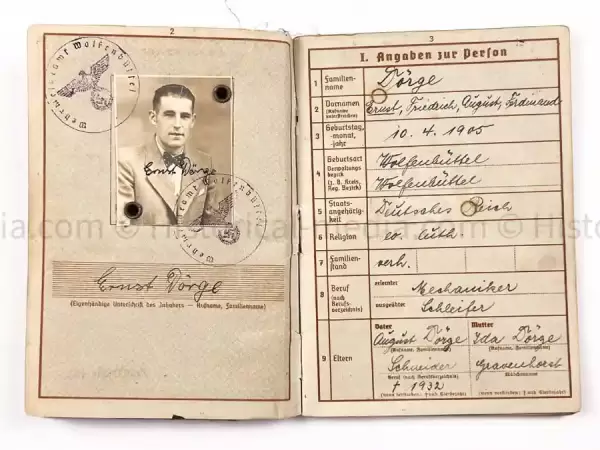 2
Wehrmeldeamt Wolfenbüttel
Ernst Dörge
Wehrmeldeamt Wolfenbüttel
Ernst Dörge
(Eigenhändige Unterschrift des Inhabers — Rufname, Familienname)
3
I. Angaben zur Person
1 Familien-
name
Dörge
2 Vornamen
(Rufname
unterstreichen)
Ernst, Friedrich, August, Ferdinand
3 Geburtstag,
-monat,
-jahr
10. 4. 1905
4 Geburtsort
Verwaltungs-
bezirk
(z. B. Kreis,
Reg. Bezirk)
Wolfenbüttel
Wolfenbüttel
5 Staats-
angehörig-
keit
Deutsches Reich
6 Religion
ev. luth
7 Familien-
stand
verh.
8 Beruf
(nach
Berufs-
verzeichnis)
erlernter
Mechaniker
ausgeübter
Schleifer
9 Eltern
Vater
August Dörge
(Rufname, Familienname)
Schneider
Beruf (nach Berufsverzeichnis)
† 1932
(wenn verstorben: † und Sterbejahr)
Mutter
Ida Dörge
(Rufname, Familienname)
Gravenhorst
Mädchenname
(wenn verstorben: † und Sterbejahr)
ia.com © Historical © Histo